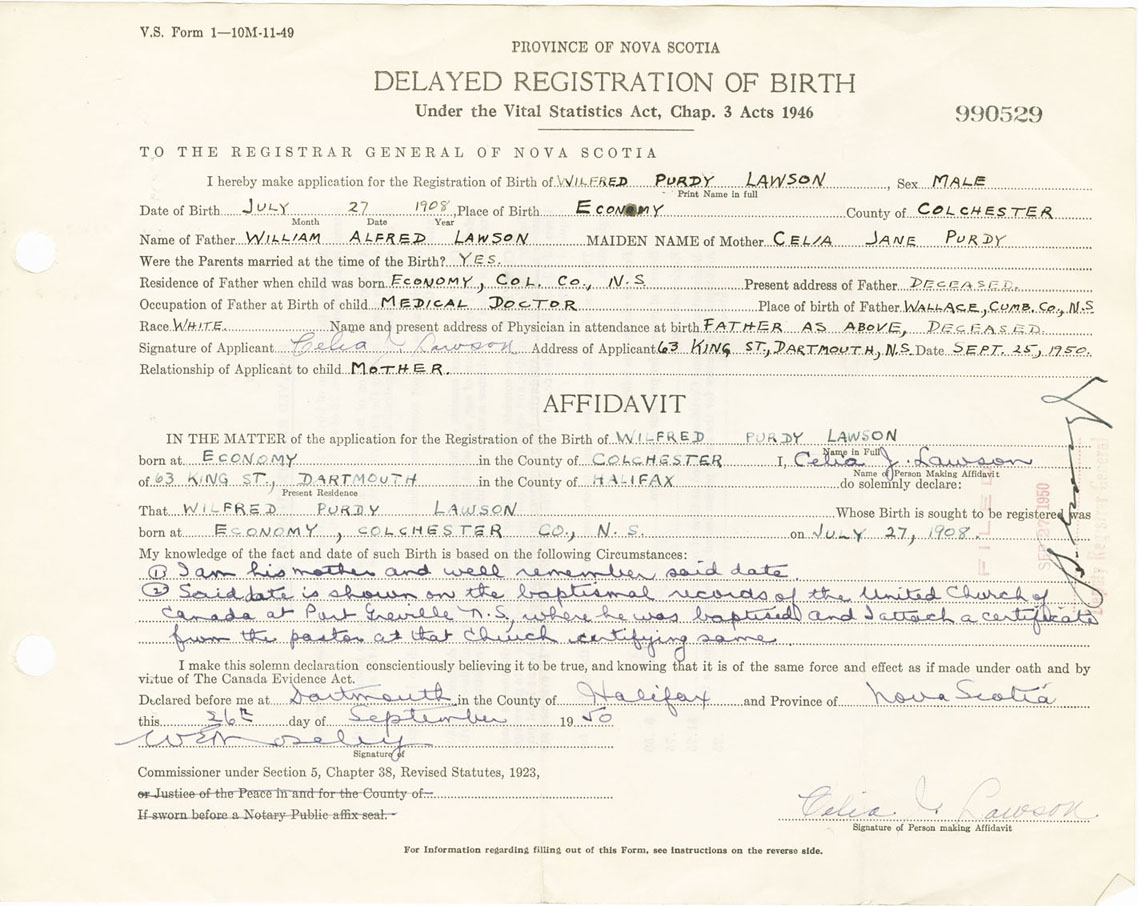 V.S. Form 1—10M-11-49
PROVINCE OF NOVA SCOTIA
DELAYED REGISTRATION OF BIRTH
Under the Vital Statistics Act, Chap. 3 Acts 1946
990529
TO THE REGISTRAR GENERAL OF NOVA SCOTIA
I hereby make application for the Registration of Birth of WILFRED PURDY LAWSON, Sex MALE
Print Name in full
Date of Birth JULY 27 1908, Place of Birth ECONOMY County of COLCHESTER
Month Date Year
Name of Father WILLIAM ALFRED LAWSON MAIDEN NAME of Mother CELIA JANE PURDY
Were the Parents married at the time of the Birth? YES.
Residence of Father when child was born ECONOMY, COL. CO., N.S Present address of Father DECEASED.
Occupation of Father at Birth of child MEDICAL DOCTOR Place of birth of Father WALLACE, CUMB. CO., N.S
Race WHITE. Name and present address of Physician in attendance at birth FATHER AS ABOVE, DECEASED.
Signature of Applicant Celia J. Lawson Address of Applicant 63 KING ST., DARTMOUTH, N.S. Date SEPT. 25, 1950.
Relationship of Applicant to child MOTHER.
AFFIDAVIT
IN THE MATTER of the application for the Registration of the Birth of WILFRED PURDY LAWSON
Name in Full
born at ECONOMY in the County of COLCHESTER I, Celia J. Lawson
Name of Person Making Affidavit
of 63 KING ST., DARTMOUTH in the County of HALIFAX do solemnly declare:
Present Residence
That WILFRED PURDY LAWSON Whose Birth is sought to be registered was
born at ECONOMY, COLCHESTER CO., N. S. on JULY 27, 1908.
My knowledge of the fact and date of such Birth is based on the following Circumstances:
① I am his mother and well remember said date
② Said date is shown on the baptismal records of the United Church of
Canada at Port Greville N.S, where he was baptised and I attach a certificate
from the pastor at that Church certifying same
FILED
SEP 27 1950
Deputy Registrar General
I make this solemn declaration conscientiously believing it to be true, and knowing that it is of the same force and effect as if made under oath and by
virtue of The Canada Evidence Act.
Declared before me at Dartmouth in the County of Halifax and Province of Nova Scotia
this 26th day of September 19 50
Signature of
Commissioner under Section 5, Chapter 38, Revised Statutes, 1923,
or Justice of the Peace in and for the County of
If sworn before a Notary Public affix seal.
Celia J. Lawson
Signature of Person making Affidavit
For Information regarding filling out of this Form, see instructions on the reverse side.